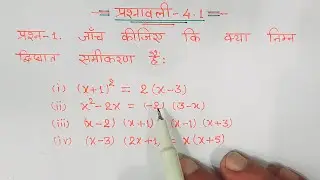 प्रश्नावली-4.1
प्रश्न-1. जाँच कीजिए कि क्या निम्न
द्विघात समीकरण है:
(i) (x+1)² = 2(x-3)
(ii) x²-2x = (-2) (3-x)
(iii) (x-2) (x+1) (x-1) (x+3)
(iv) (x-3) (2x+1) = x(x+5)